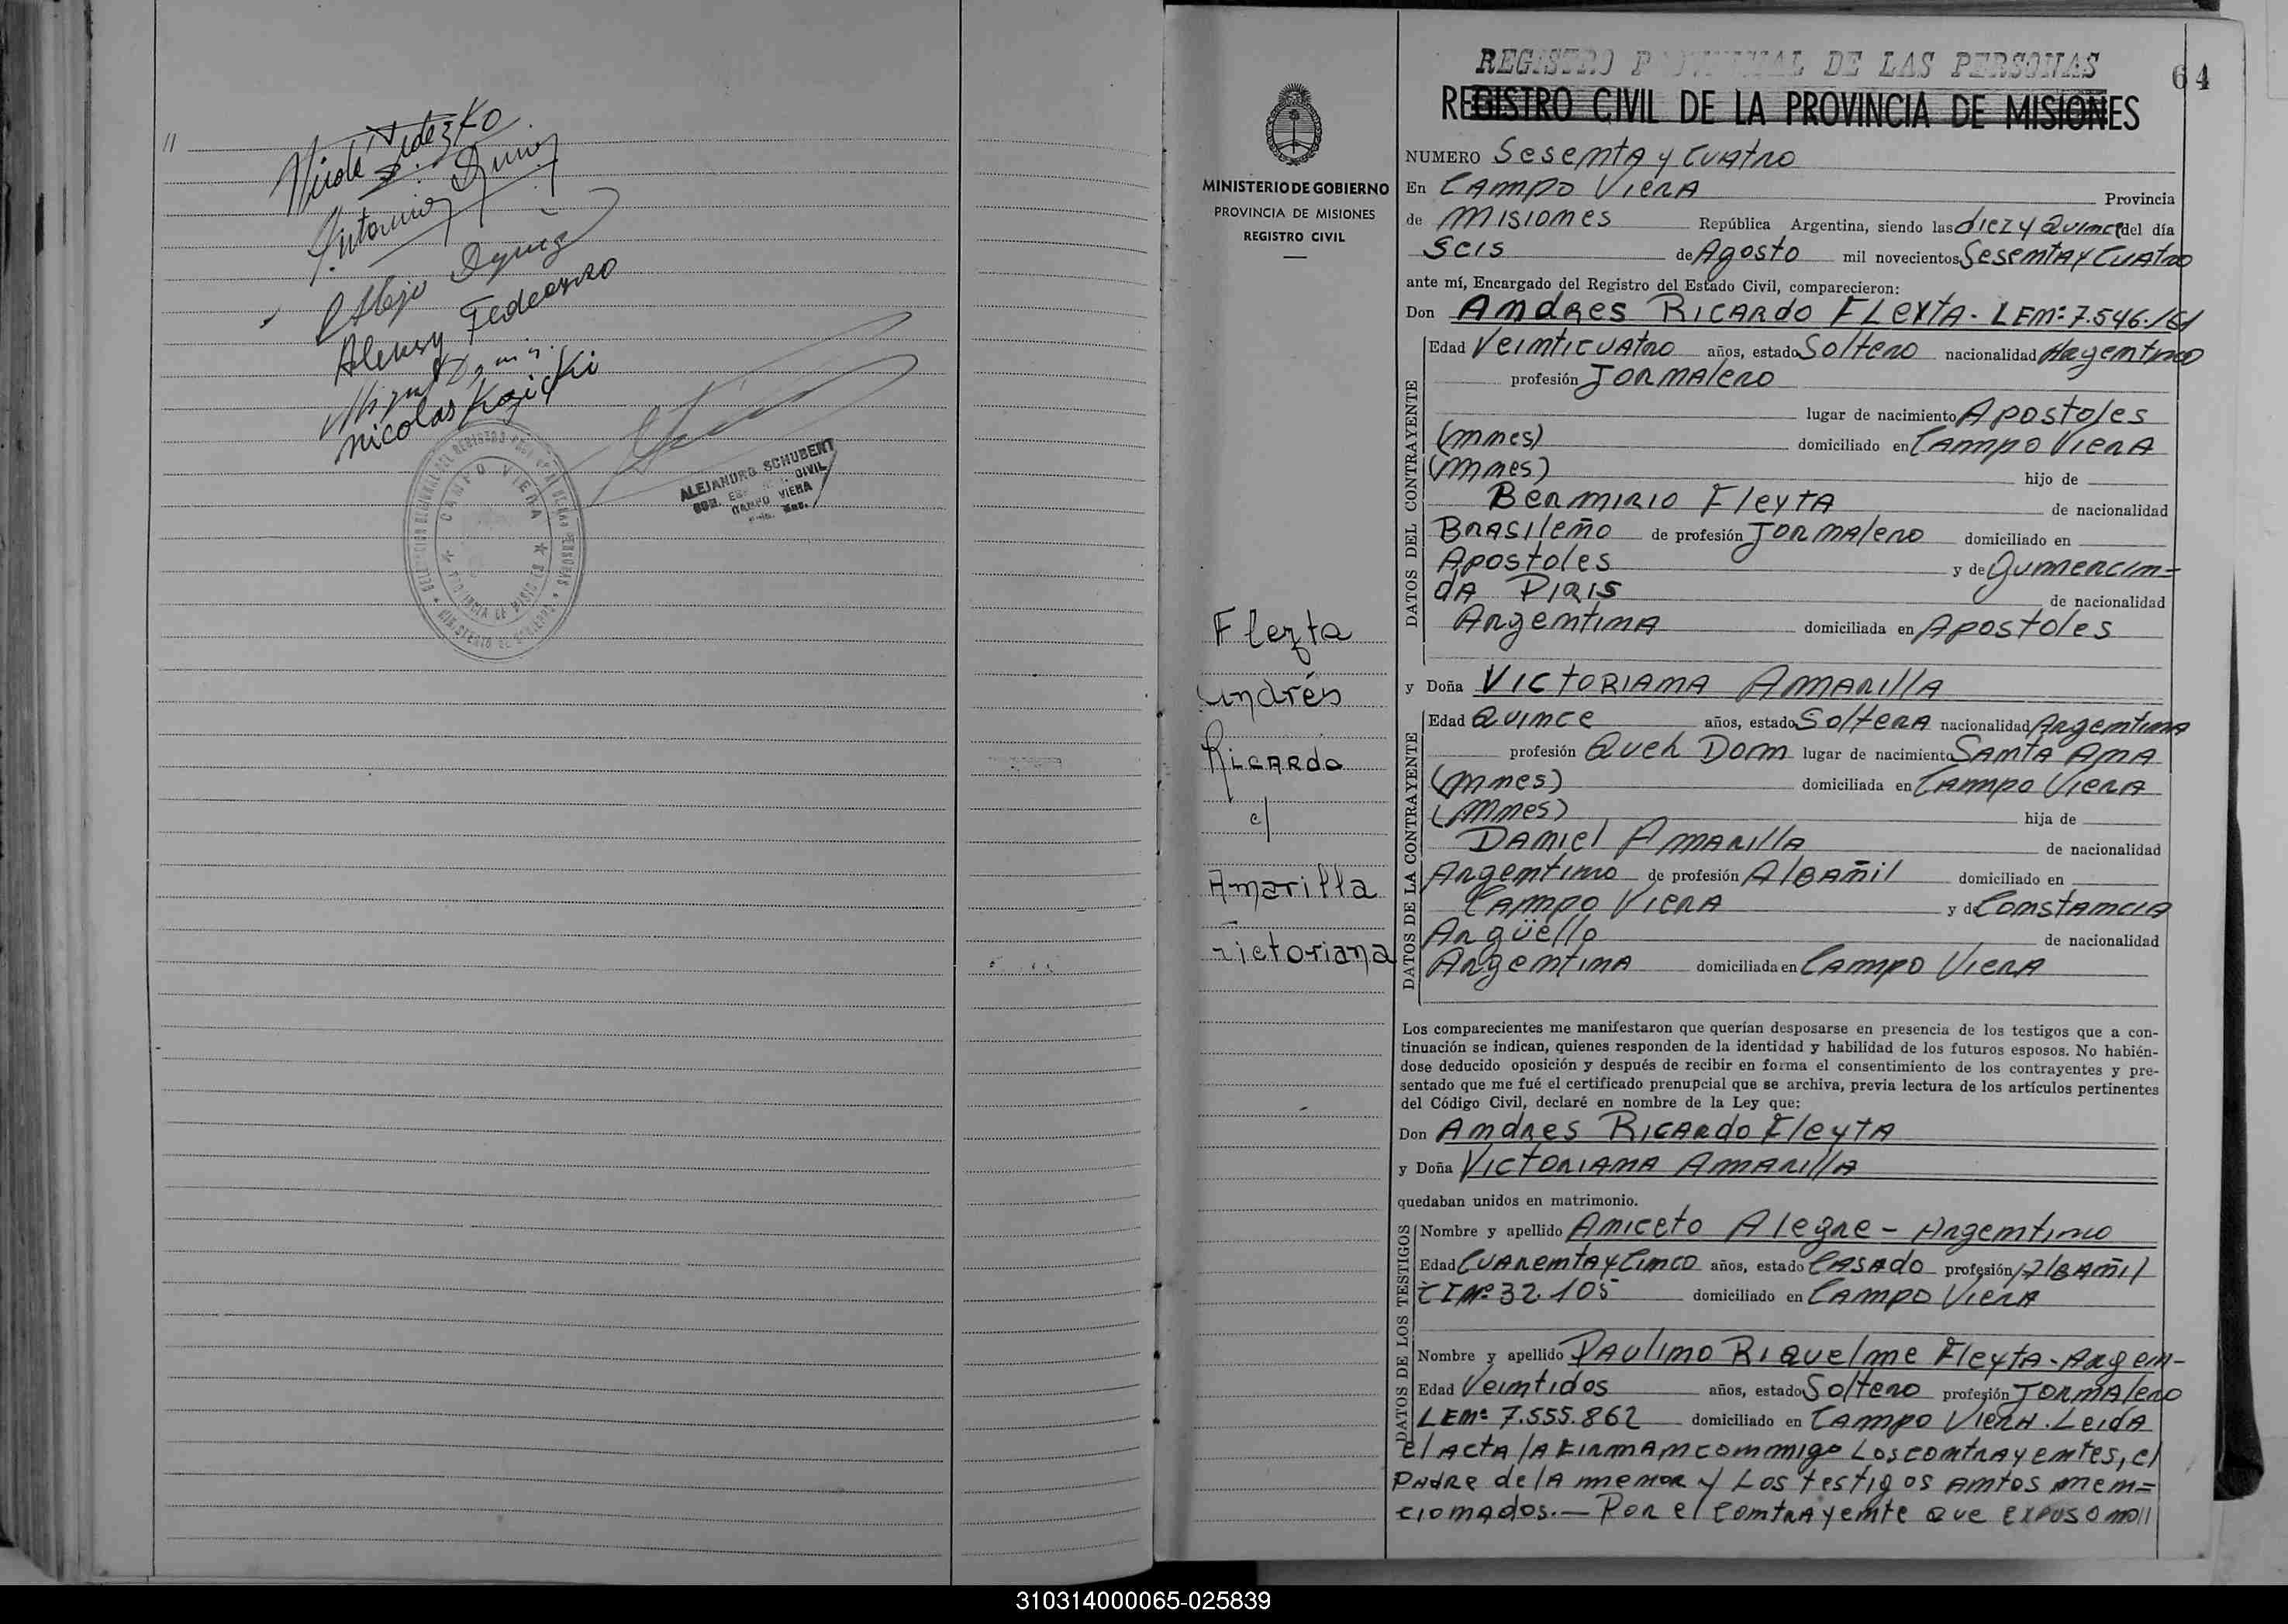 //
Antonio
Alejo
Aleksy Fedeczko
Nicolas Kozicki
CAMPO VIERA
ALEJANDRO SCHUBERT
CIVIL
CAMPO VIERA
REGISTRO PROVINCIAL DE LAS PERSONAS
64
REGISTRO CIVIL DE LA PROVINCIA DE MISIONES
MINISTERIO DE GOBIERNO
PROVINCIA DE MISIONES
REGISTRO CIVIL
Fleyta
Andrés
Ricardo
c/
Amarilla
Victoriana
NUMERO Sesenta y Cuatro
En Campo Viera Provincia
de Misiones República Argentina, siendo las diez y Quince del día
Seis de Agosto mil novecientos Sesenta y Cuatro
ante mí, Encargado del Registro del Estado Civil, comparecieron:
Don Andres Ricardo Fleyta.
DATOS DEL CONTRAYENTE
Edad Veinticuatro años, estado Soltero nacionalidad Argentino
profesión Jornalero
lugar de nacimiento Apostoles
(Mnes) domiciliado en Campo Viera
(Mnes) hijo de
Bermirio Fleyta de nacionalidad
Brasileño de profesión Jornalero domiciliado en
Apostoles y de Gumercin=
da Piris de nacionalidad
Argentina domiciliada en Apostoles
y Doña Victoriana Amarilla
DATOS DE LA CONTRAYENTE
Edad Quince años, estado Soltera nacionalidad Argentina
profesión Queh Dom lugar de nacimiento Santa Ana
(Mnes) domiciliada en Campo Viera
(Mnes) hija de
Daniel Amarilla de nacionalidad
Argentino de profesión Albañil domiciliado en
Campo Viera y de Constancia
Argüello de nacionalidad
Argentina domiciliada en Campo Viera
Los comparecientes me manifestaron que querían desposarse en presencia de los testigos que a con-
tinuación se indican, quienes responden de la identidad y habilidad de los futuros esposos. No habién-
dose deducido oposición y después de recibir en forma el consentimiento de los contrayentes y pre-
sentado que me fué el certificado prenupcial que se archiva, previa lectura de los artículos pertinentes
del Código Civil, declaré en nombre de la Ley que:
Don Andres Ricardo Fleyta
y Doña Victoriana Amarilla
quedaban unidos en matrimonio.
DATOS DE LOS TESTIGOS
Nombre y apellido Aniceto Alegre - Argentino
Edad Cuarenta y Cinco años, estado Casado profesión Albañil
CI Nº 32.105 domiciliado en Campo Viera
Nombre y apellido Paulino Riquelme Fleyta - Argen-
Edad Veintidos años, estado Soltero profesión Jornalero
LE Nº 7.555.862 domiciliado en Campo Viera. Leida
el acta la firman conmigo los contrayentes, el
padre de la menor y los testigos antes men=
cionados.— Por el contrayente que expuso no//
310314000065-025839